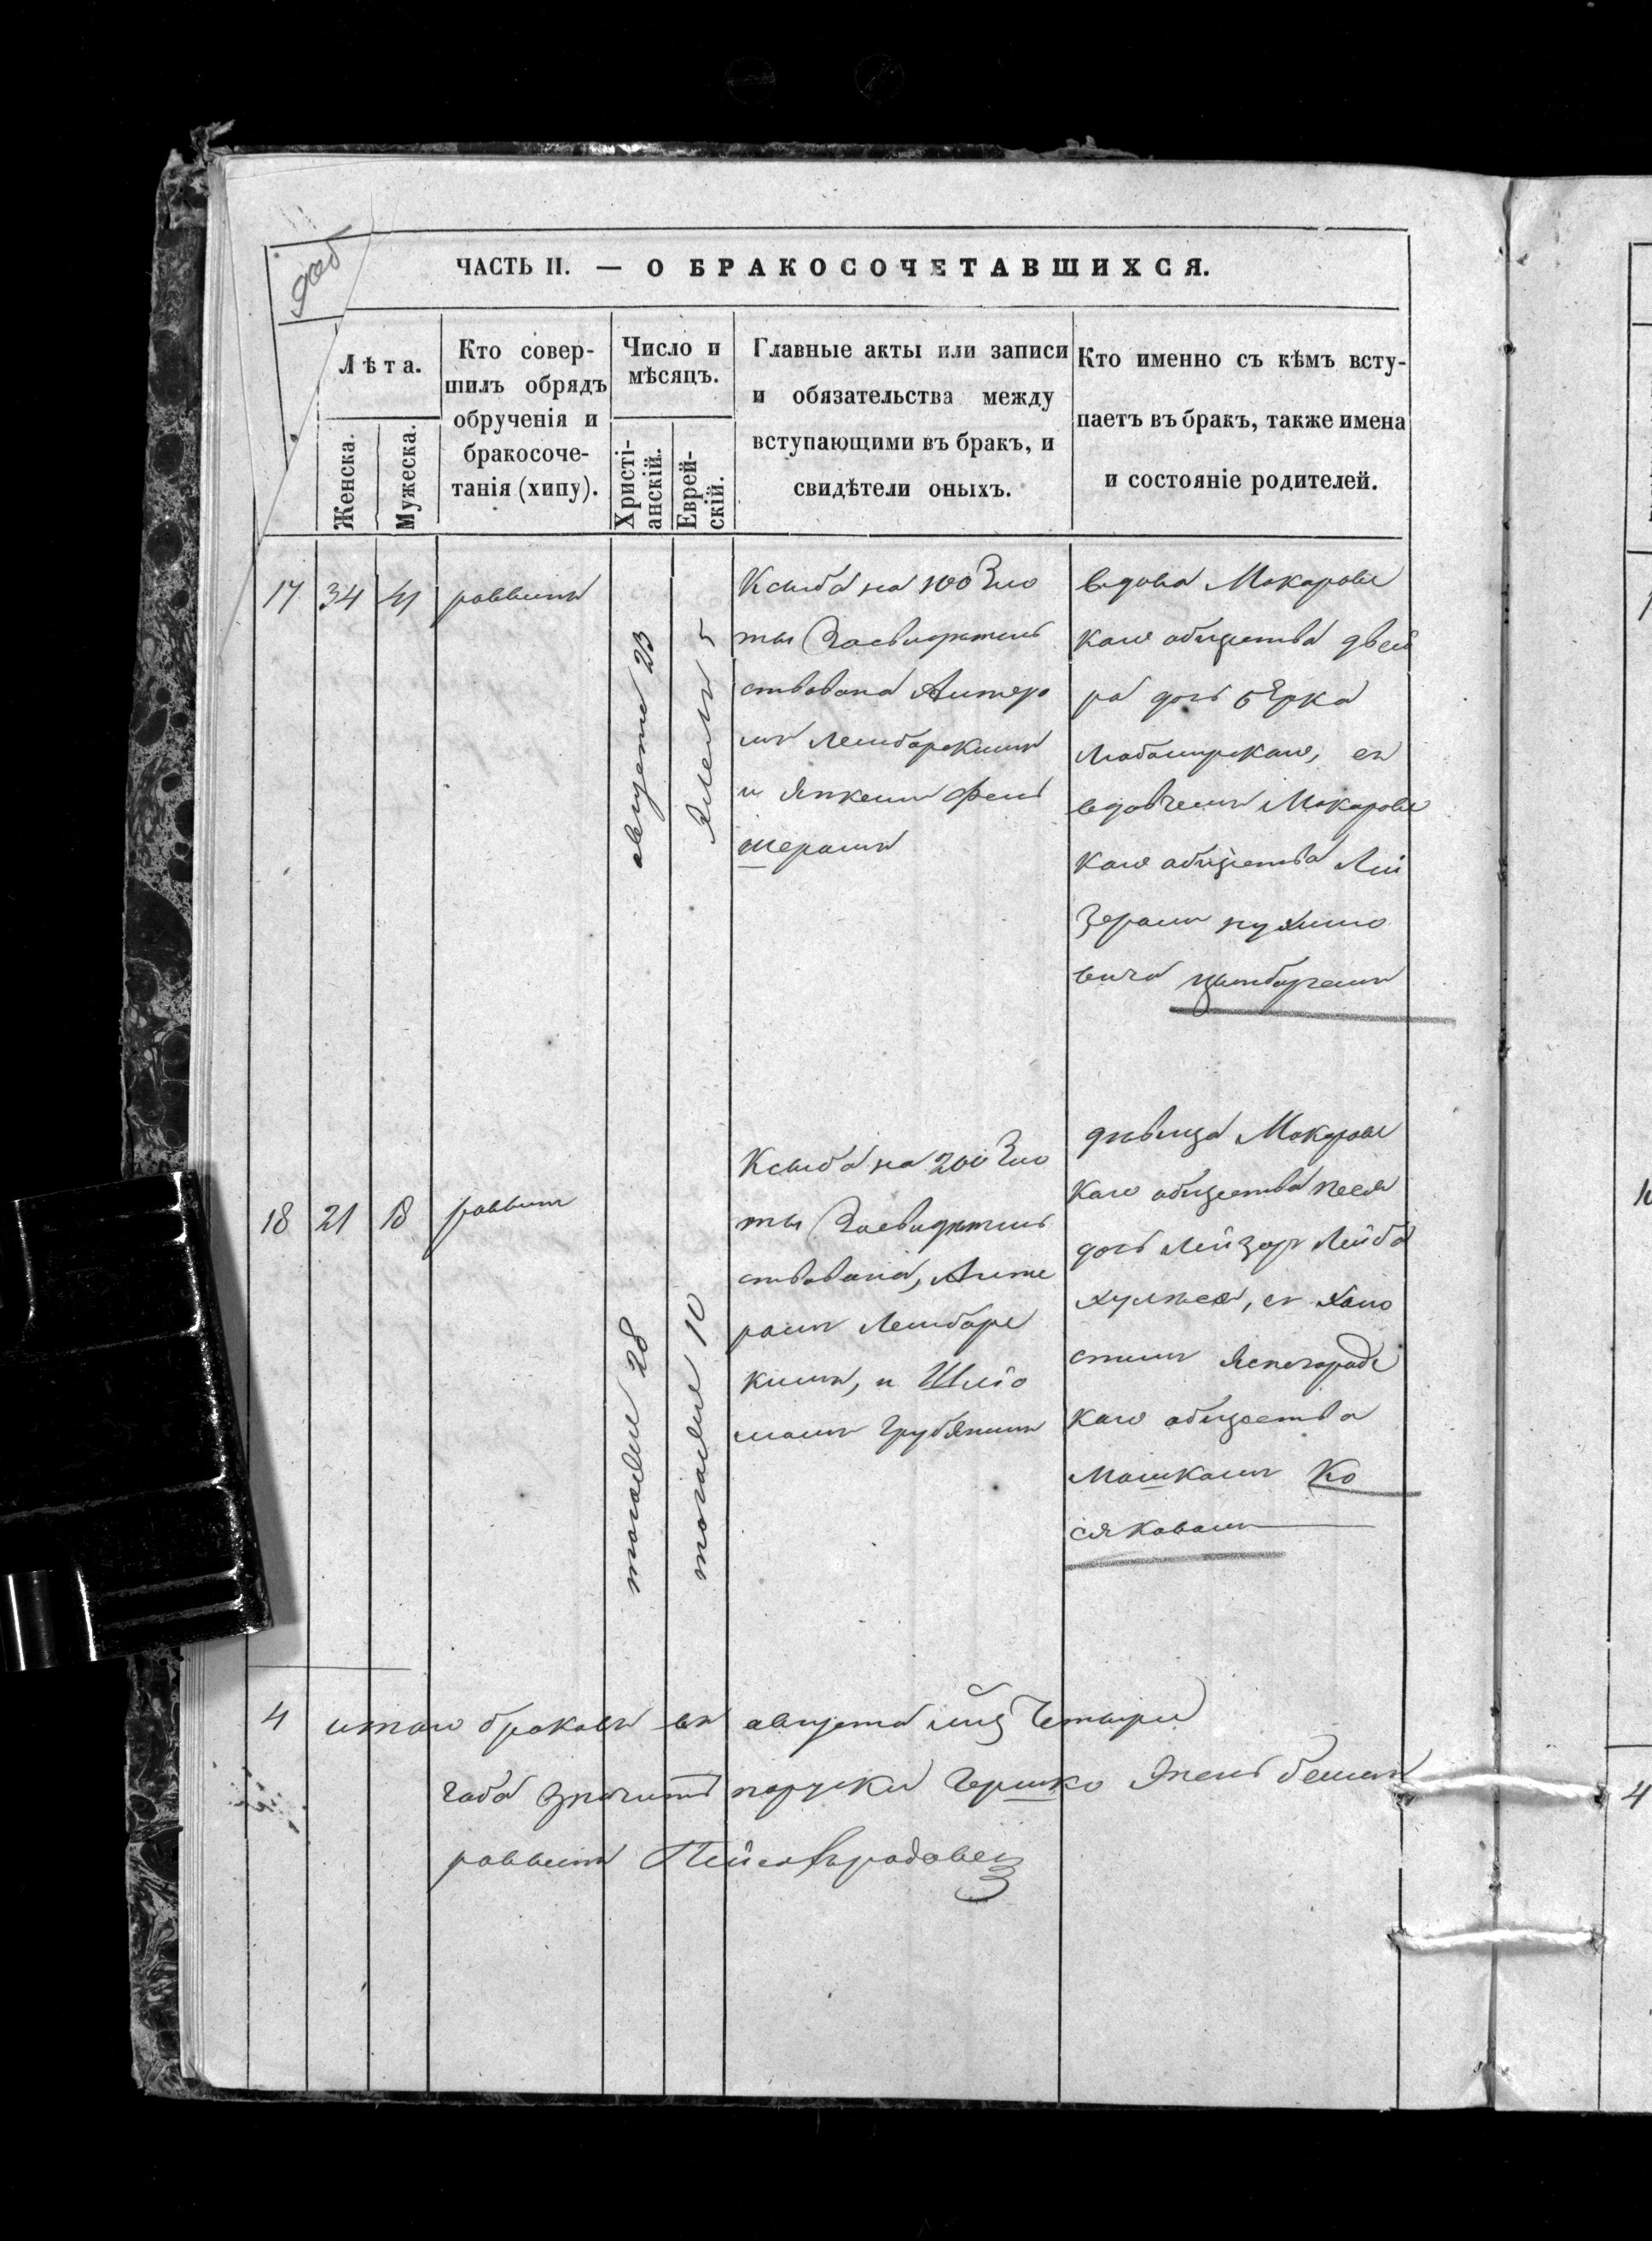 ЧАСТЬ II. — О БРАКОСОЧЕТАВШИХСЯ.
Лѣта.
Женска.
Мужеска.
Кто совер-
шилъ обрядъ
обрученія и
бракосоче-
танія (хипу).
Число и
мѣсяцъ.
Христі-
анскій.
Еврей-
скій.
Главные акты или записи
и обязательства между
вступающими въ бракъ, и
свидѣтели оныхъ.
Кто именно съ кѣмъ всту-
паетъ въ бракъ, также имена
и состояніе родителей.
17 34 41 раввинъ
августа 23
Элелъ 5
Ксыба на 100 Зло
ты Засвидѣтель
ствована Алтеро
мъ Лембарскимъ
и Янкелемъ Фель
шерамъ
вдова Макаровс
каго общества Двей
ра дочь Берка
Любомирскаго, съ
вдовцемъ Макаровс
каго общества Лей
Зерамъ
вича Цымбаремъ
18 21 18 раввинъ
тогоже 28
тогоже 10
Ксыба на 200 Зло
ты Засвидѣтель
ствована, Алте
рамъ Лембарс
кимъ, и Шлio
мамъ Грубянимъ
дѣвица Макаровс
каго общества Песя
дочь Лейзер Лейба
съ холо
стымъ Ясногородс
каго общества
Мошкамъ Ко
сяковамъ
4 итаго браковъ въ августа мцѣ Четыри
раввинъ